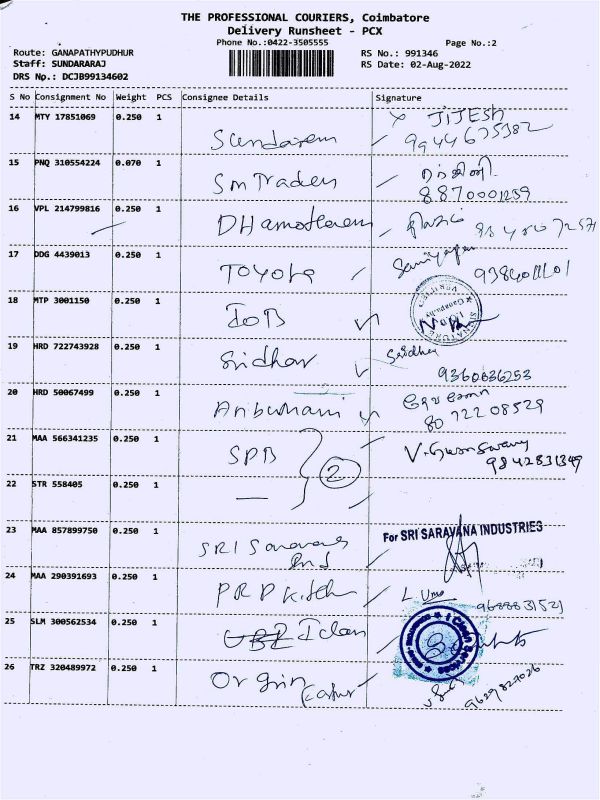 THE PROFESSIONAL COURIERS, Coimbatore
Delivery Runsheet - PCX
Phone No.:0422-3505555
Page No.:2
Route: GANAPATHYPUDHUR
RS No.: 991346
Staff: SUNDARARAJ
RS Date: 02-Aug-2022
DRS Np.: DCJB99134602
S No Consignment No Weight PCS Consignee Details Signature
14 MTY 17851069 0.250 1 Sundaram JIJESH
9944675382
15 PNQ 310554224 0.070 1 Sm Traders
8870001239
16 VPL 214799816 0.250 1 DHamotharam
17 DDG 4439013 0.250 1 TOYOTA
18 MTP 3001150 0.250 1 IOB
19 HRD 722743928 0.250 1 Sridhar Sridhar
9360636253
20 HRD 50067499 0.250 1 Anbumani
80 722 08529
21 MAA 566341235 0.250 1 SPB
9842831349
2
22 STR 558405 1 —
23 MAA 857899750 0.250 1 SRI Saravana Ind For SRI SARAVANA INDUSTRIES
24 MAA 290391693 0.250 1 PRP Uma
9688831521
25 SLM 300562534 0.250 1 I Clean I Clean Services
26 TRZ 320489972 0.250 1 Origin
9629827026